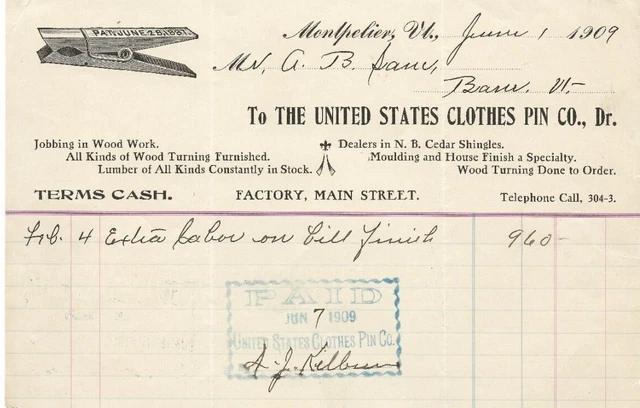 PAT. JUNE 28, 1887.
Montpelier, Vt., June 1 1909
Mr. A. B. Lane,
Barre. Vt-
To THE UNITED STATES CLOTHES PIN CO., Dr.
Jobbing in Wood Work.
All Kinds of Wood Turning Furnished.
Lumber of All Kinds Constantly in Stock.
Dealers in N. B. Cedar Shingles.
Moulding and House Finish a Specialty.
Wood Turning Done to Order.
TERMS CASH. FACTORY, MAIN STREET. Telephone Call, 304-3.
Feb. 4 Extra Labor on Bill finish 960-
PAID
JUN 7 1909
UNITED STATES CLOTHES PIN CO.
A. J. Kilburn